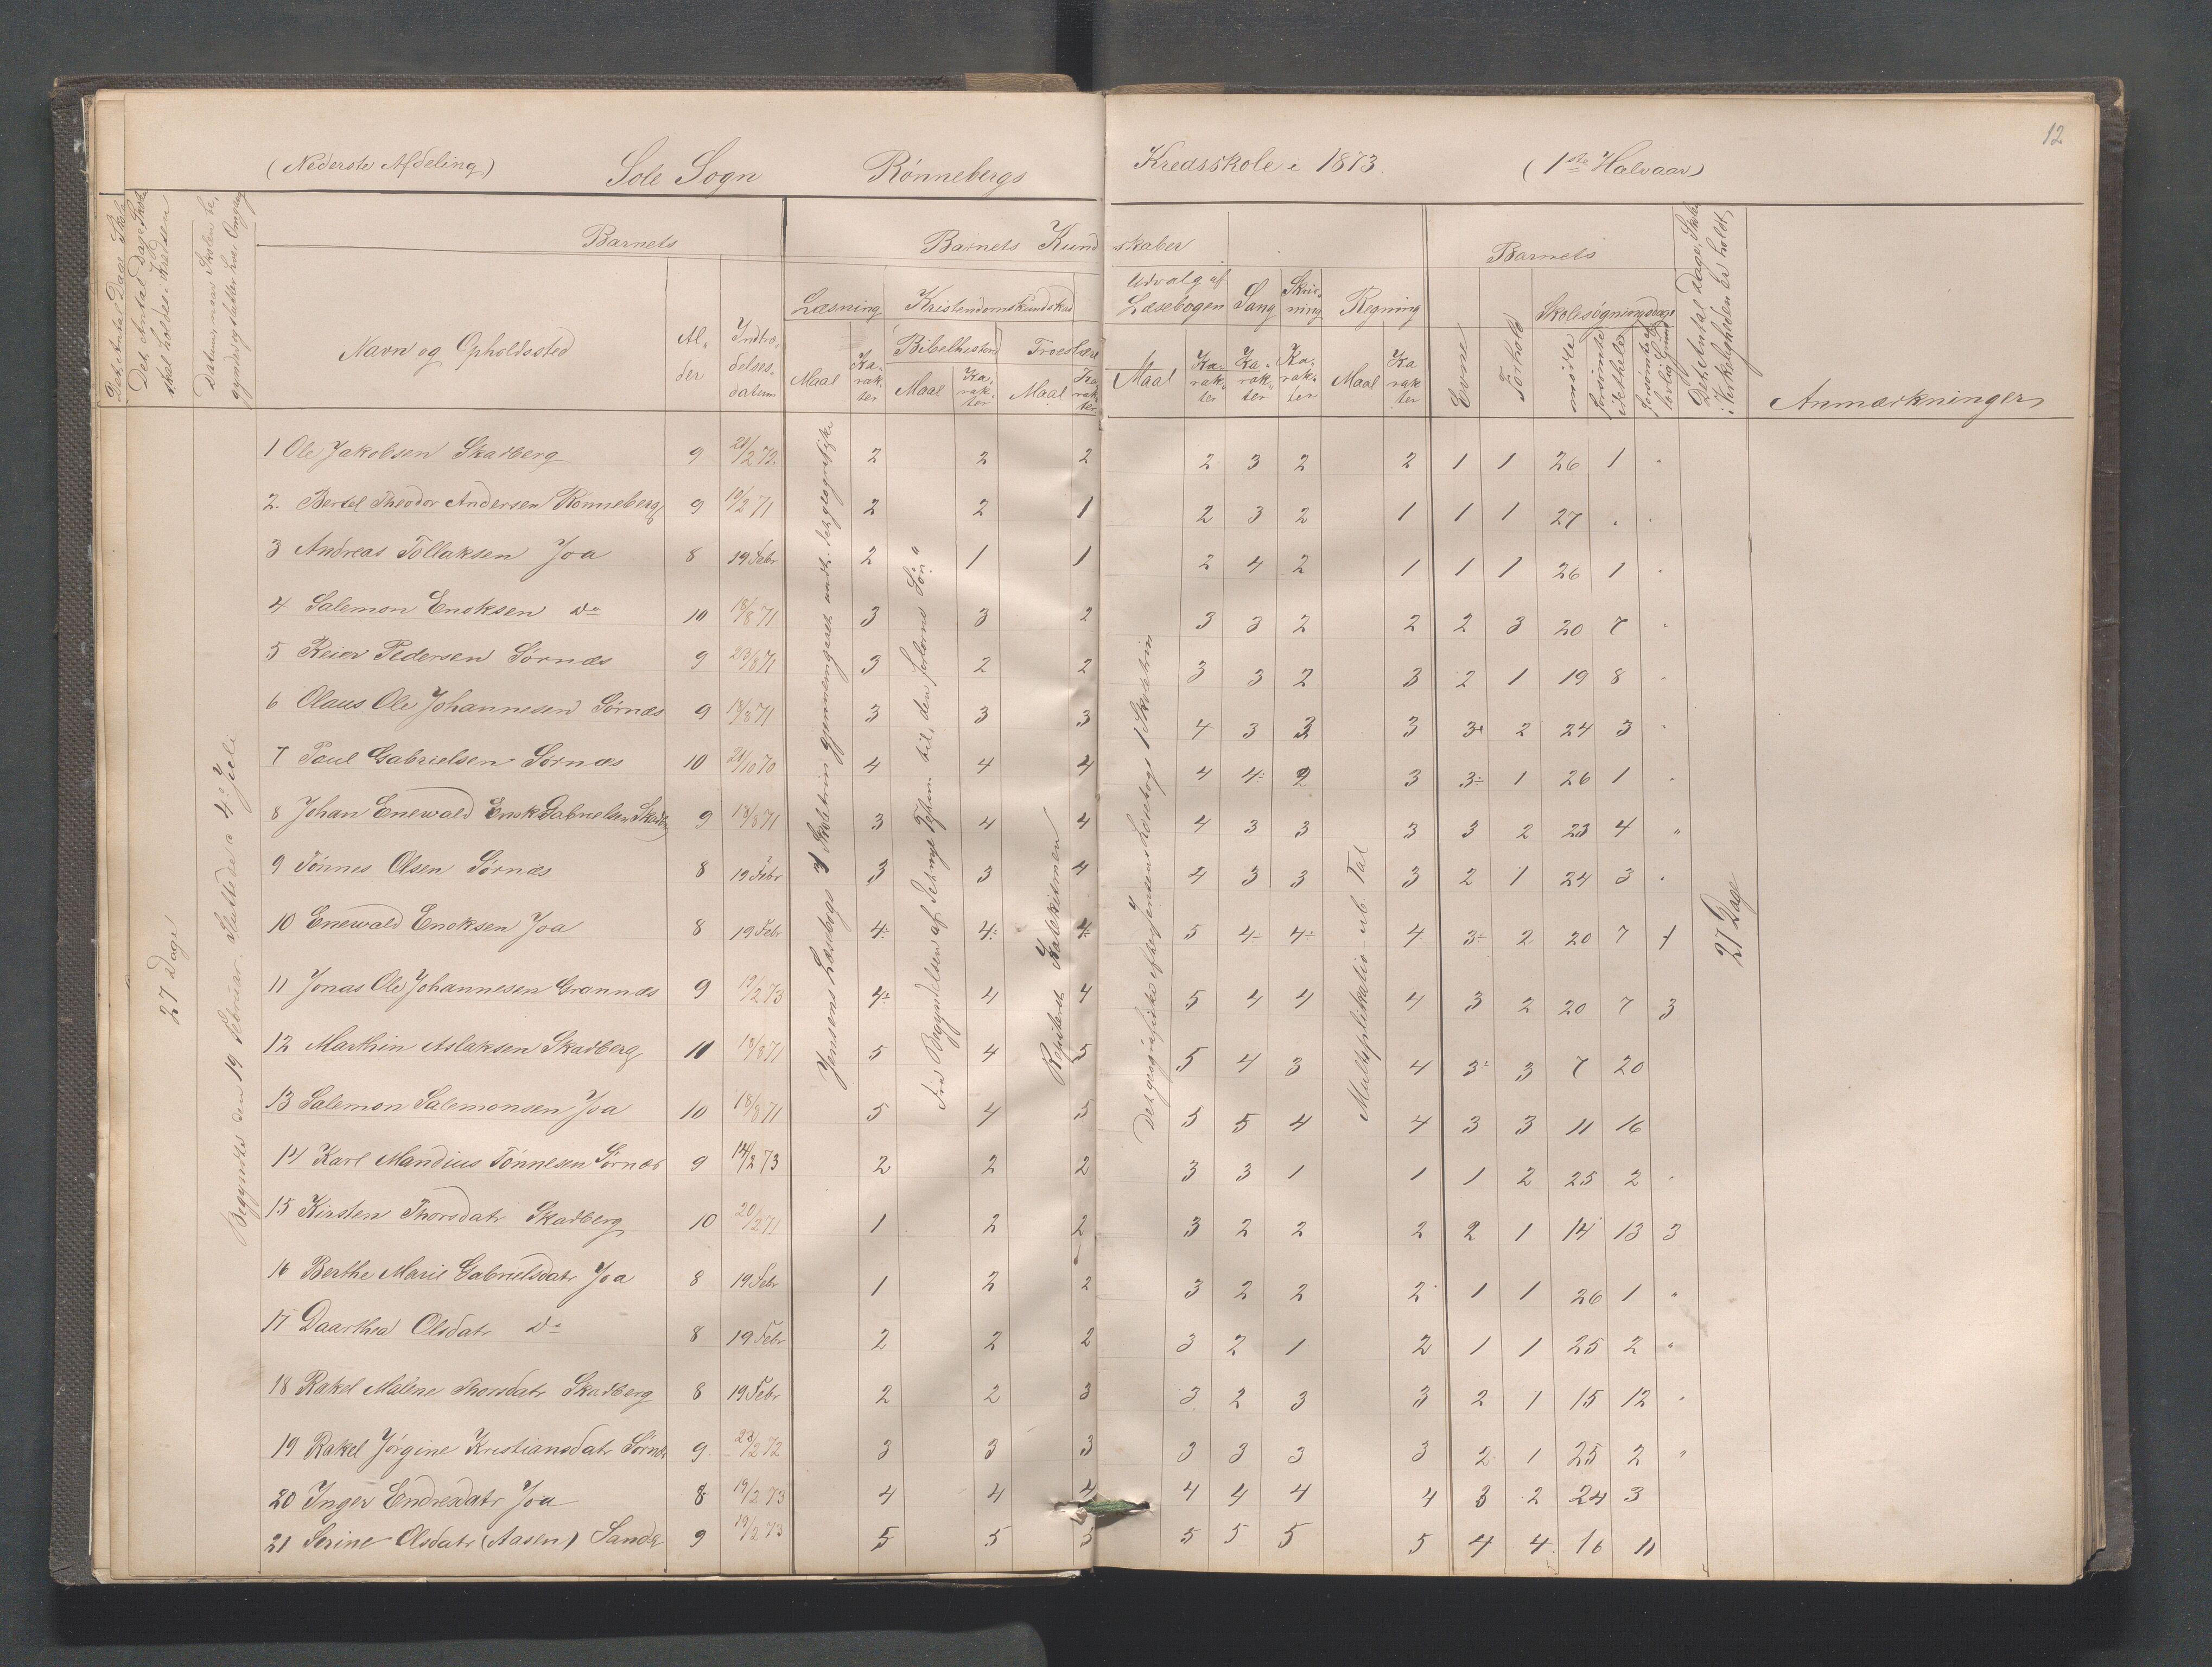 12
(Nederste Afdeling) Sole Sogn Rønnebergs Kredsskole i 1873 (1ste Halvaar)
Det Antal Dage Skole
Det Antal Dage Skole
skal holdes i Kredsen
Datum, naar Skolen be-
gyndte og slutter hver Omgang
Barnets
Barnets Kundskaber
Barnets
Det Antal Dage, Skole
i Virkeligheden er holdt,
Navn og Opholdssted
Al-
der
Indtræ-
delses-
datum
Læsning
Kristendomskundskab
Udvalg af
Læsebogen
Sang
Skriv-
ning
Regning
Evne
Forhold
Skolesøgningsdage
Bibelhistorie
Troeslære
Maal
Ka-
rak-
ter
Maal
Ka-
rak-
ter
Maal
Ka-
rak-
ter
Maal
Ka-
rak-
ter
Ka-
rak-
ter
Ka-
rak-
ter
Maal
Ka
rak
ter
mødte
forsømte
i det hele
forsømte af
lovlig Grund
Anmærkninger
27 Dage
Begyndte den 19 Februar. Sluttede a 4de Juli
Jensens Læsebogs 1 Skoletrin gjennemgaaet undt. det geografiske
Fra Begyndelsen af det nye Testam. til „den forlorne Søn“
Repeteret Katekismen
Det geografiske efter Jensens Læsebogs 1 Skoletrin
Multiplikation ub. Tal
27 Dage
1 Ole Jakobsen Skadberg 9 20/2 72 2 2 2 2 3 2 2 1 1 26 1 "
2. Bertel Theodor Andersen Rønneberg 9 10/2 71 2 2 1 2 3 2 1 1 1 27 " "
3 Andreas Tollaksen Joa 8 19 Febr 2 1 1 2 4 2 1 1 1 26 1 "
4 Salemon Enoksen do 10 18/8 71 3 3 2 3 3 2 2 2 3 20 7 "
5 Reier Pedersen Sørnæs 9 23/8 71 3 2 2 3 3 2 3 2 1 19 8 "
6 Olaus Ole Johannesen Sørnæs 9 18/8 71 3 3 3 4 3 3 3 3 2 24 3 "
7 Paul Gabrielsen Sørnæs 10 21/10 70 4 4 4 4 4÷ 2 3 3÷ 1 26 1 "
8 Johan Enewald Enok Gabrielsen Skadberg 9 18/8 71 3 4 4 4 3 3 3 3 2 23 4 "
9 Tønnes Olsen Sørnæs 8 19 Febr 3 3 4 4 3 3 3 2 1 24 3 "
10 Enewald Enoksen Joa 8 19 Febr 4÷ 4÷ 4÷ 5 4÷ 4÷ 4 3÷ 2 20 7 1
11 Jonas Ole Johannesen Grannæs 9 19/2 73 4÷ 4 4 5 4 4 4 3 2 20 7 3
12 Marthin Aslaksen Skadberg 11 18/8 71 5 4 5 5 4 3 4 3÷ 3 7 20
13 Salemon Salemonsen Joa 10 18/8 71 5 4 5 5 5 4 4 3 3 11 16
14 Karl Mandius Tønnesen Sørnæs 9 14/2 73 2 2 2 3 3 1 1 1 2 25 2 "
15 Kirsten Thorsdatr Skadberg 10 20/2 71 1 2 2 3 2 2 2 2 1 14 13 3
16 Berthe Marie Gabrielsdatr Joa 8 19 Febr 1 2 2 3 2 2 2 1 1 26 1 "
17 Daarthea Olsdatr do 8 19 Febr 2 2 2 3 2 1 2 1 1 25 2 "
18 Rakel Malene Thorsdatr Skadberg 8 19 Febr 2 2 3 3 2 3 3 2 1 15 12 "
19 Rakel Jørgine Kristiansdatr Sørnæs 9 23/2 72 3 3 3 3 3 3 3 2 1 25 2 "
20 Inger Endresdatr Joa 8 19/2 73 4 4 4 4 4 4 4 3 2 24 3
21 Serine Olsdatr (Aasen) Sande 9 19/2 73 5 5 5 5 5 5 5 4 4 16 11